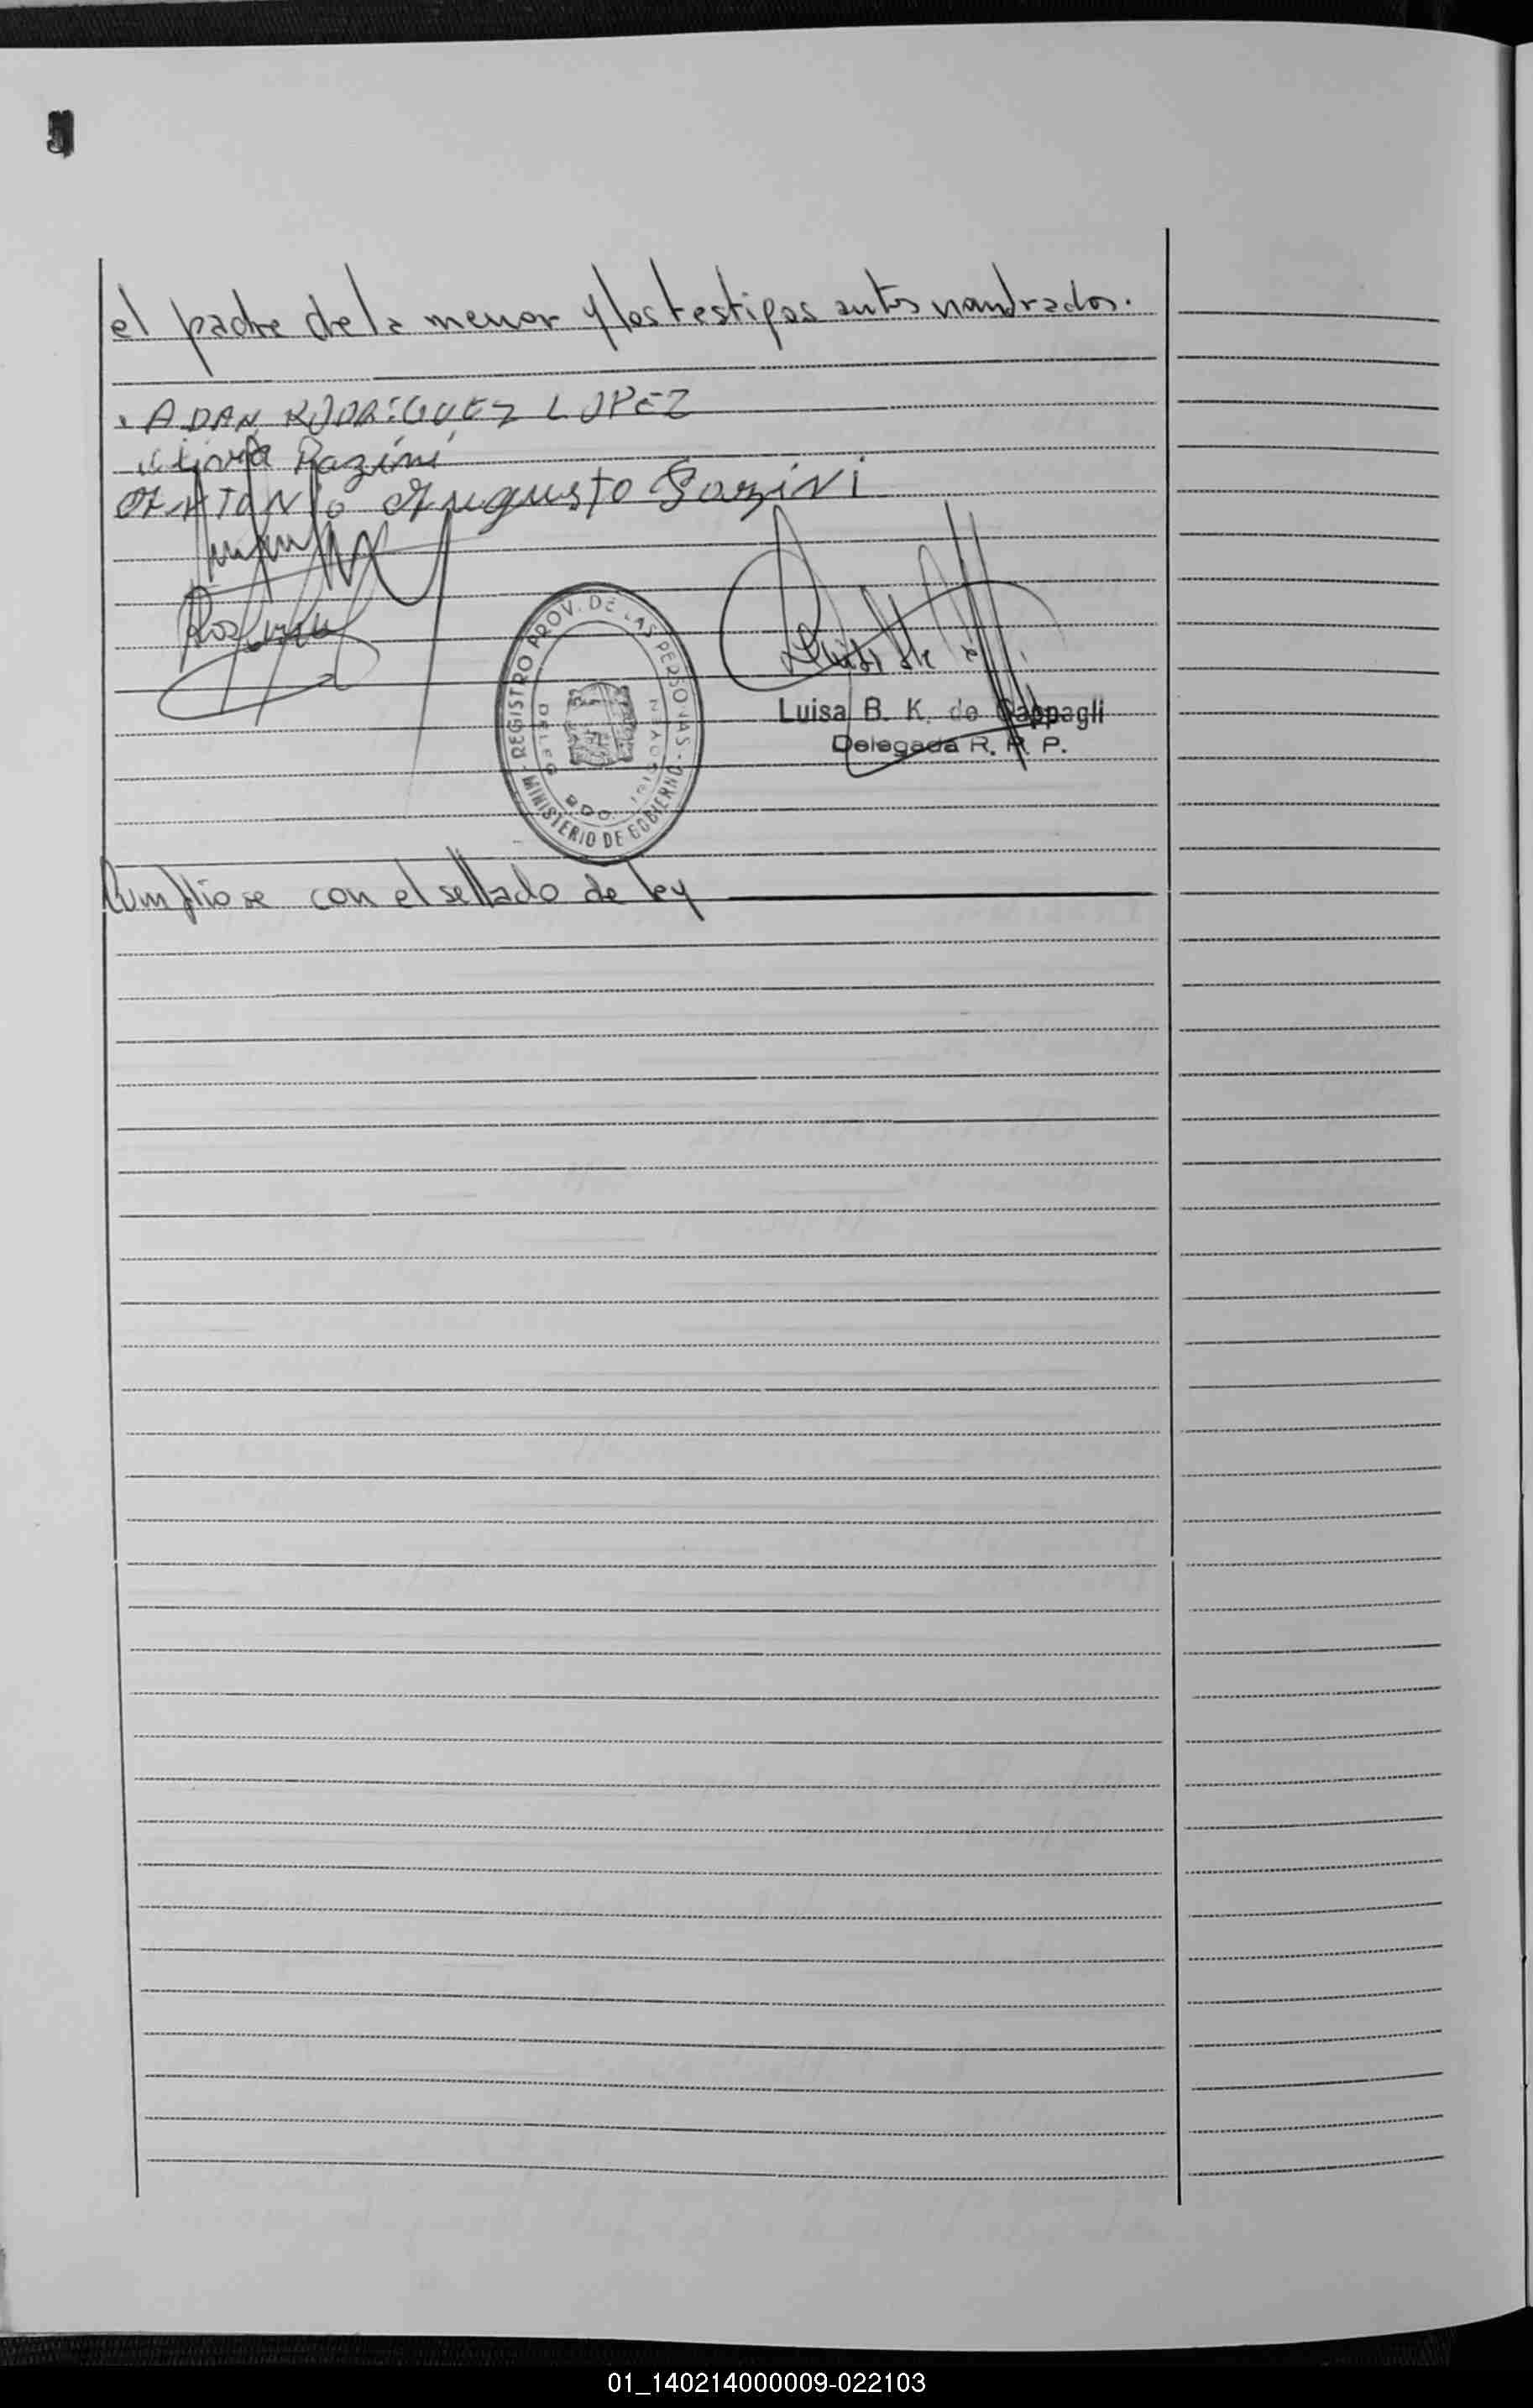 el padre de la menor y los testigos antes nombrados.
ADAN RODRIGUEZ LOPEZ
Pazini
ANTONIO Augusto Pazini
REGISTRO PROV. DE LAS PERSONAS - MINISTERIO DE GOBIERNO
Luisa B. K. de Cappagli
Delegada R. P. P.
Cumpliose con el sellado de ley
01_140214000009-022103